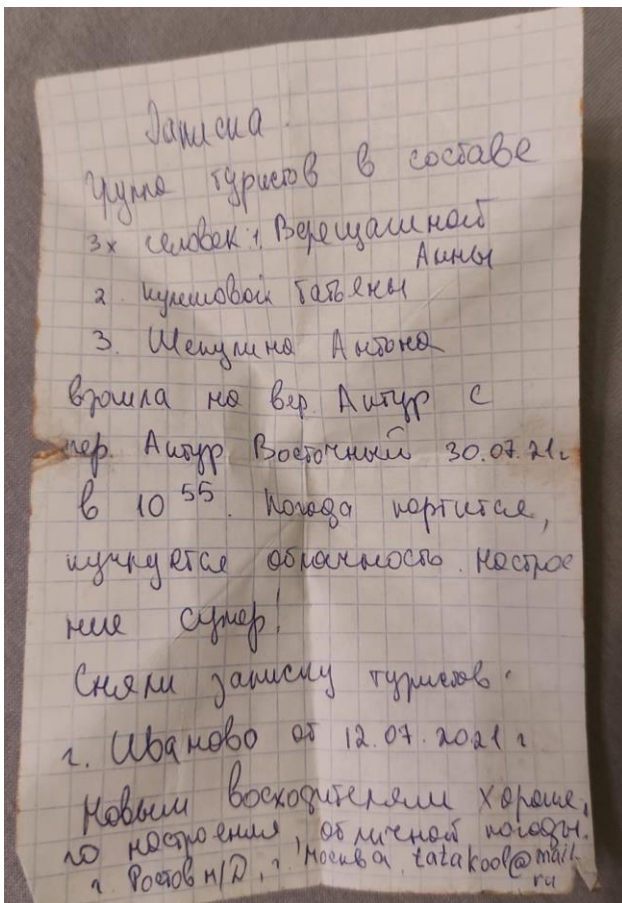 Записка.
Группа туристов в составе
3х человек: 1. Верещагиной
Анны
2. Кулешовой Татьяны
3. Шекулина Антона
взошла на вер. Актур с
пер. Актур Восточный 30.07.21г.
в 10 55. Погода портится,
кучкуется облачность. Настрое
ние супер!
Сняли записку туристов
г. Иваново от 12.07.2021 г
Новым восходителям хороше,
го настроения, отличной погоды.
г. Ростов н/Д, г. Москва tatakool@mail.
ru